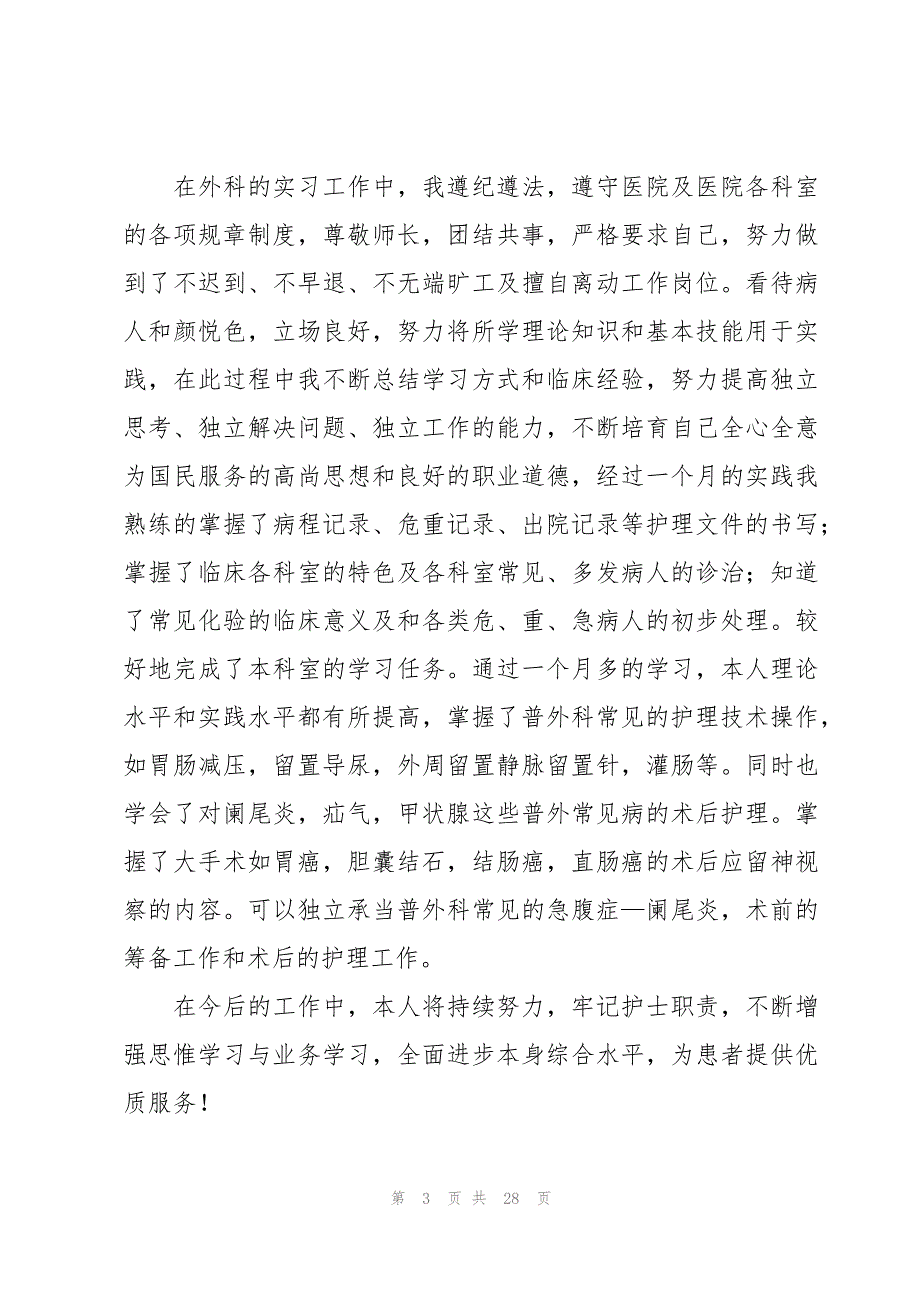 在外科的实习工作中，我遵纪遵法，遵守医院及医院各科室
的各项规章制度，尊敬师长，团结共事，严格要求自己，努力做
到了不迟到、不早退、不无端旷工及擅自离动工作岗位。看待病
人和颜悦色，立场良好，努力将所学理论知识和基本技能用于实
践，在此过程中我不断总结学习方式和临床经验，努力提高独立
思考、独立解决问题、独立工作的能力，不断培育自己全心全意
为国民服务的高尚思想和良好的职业道德，经过一个月的实践我
熟练的掌握了病程记录、危重记录、出院记录等护理文件的书写；
掌握了临床各科室的特色及各科室常见、多发病人的诊治；知道
了常见化验的临床意义及和各类危、重、急病人的初步处理。较
好地完成了本科室的学习任务。通过一个月多的学习，本人理论
水平和实践水平都有所提高，掌握了普外科常见的护理技术操作，
如胃肠减压，留置导尿，外周留置静脉留置针，灌肠等。同时也
学会了对阑尾炎，疝气，甲状腺这些普外常见病的术后护理。掌
握了大手术如胃癌，胆囊结石，结肠癌，直肠癌的术后应留神视
察的内容。可以独立承当普外科常见的急腹症—阑尾炎，术前的
筹备工作和术后的护理工作。
在今后的工作中，本人将持续努力，牢记护士职责，不断增
强思惟学习与业务学习，全面进步本身综合水平，为患者提供优
质服务！
第 3 页 共 28 页